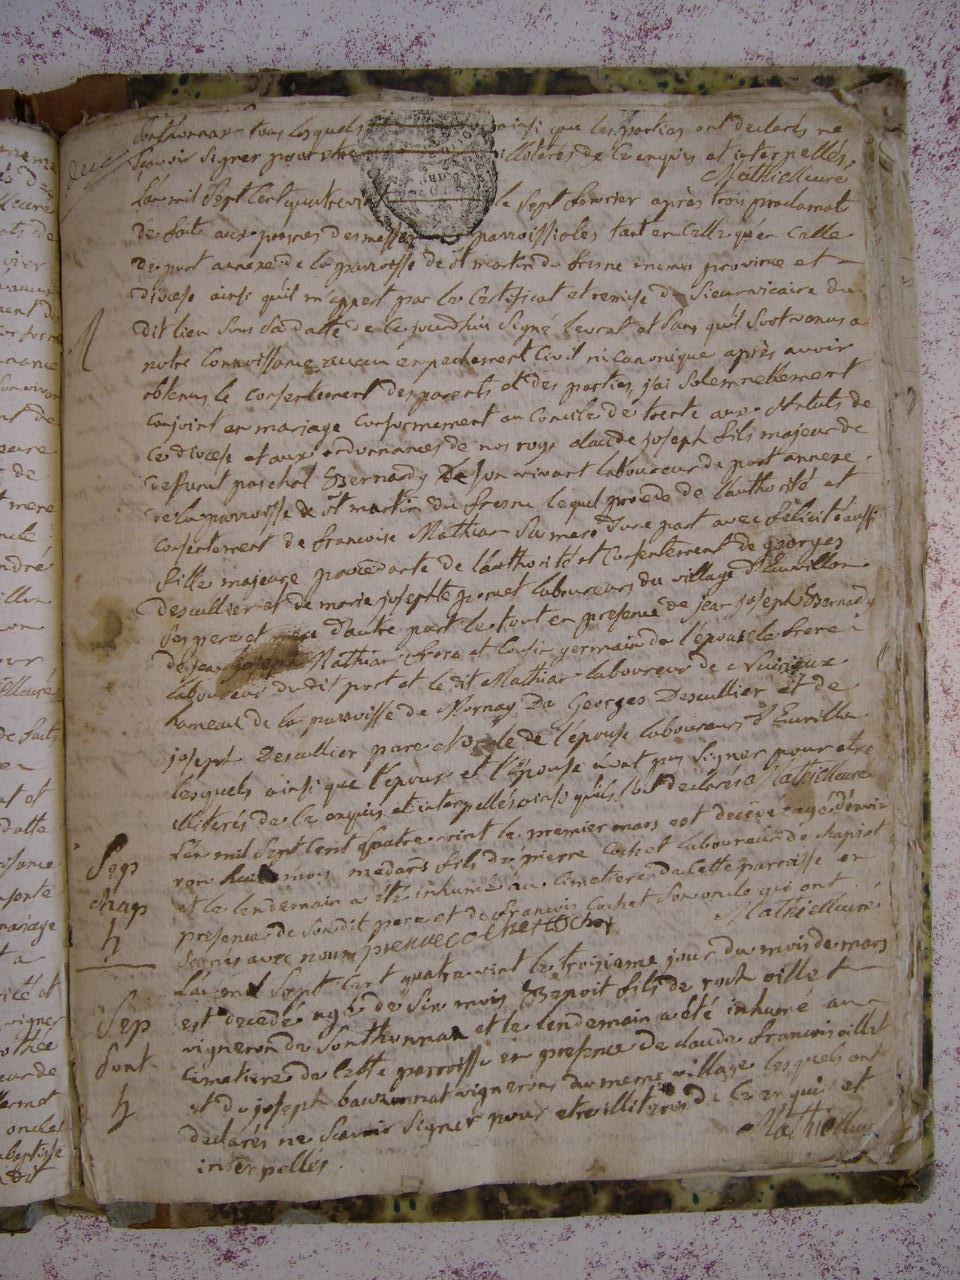 Sonthonnax tous lesquels ainsi que les parties ont declarés ne
scavoir signer pour etre illiterés de ce enquis et interpellés
Mathieu curé
L'an mil sept cent quatre vint le sept fevrier après trois proclamat
de fait aux prones des messes parroissiales tant en celle qu'en celle
de port annexe de la parroisse de st martin du fresne meme province et
diocese ainsi qu'il m'appert par le certificat et remise du sieur vicaire du
dit lieu sous sa datte de ce jourdhui signé levrat et sans qu'il soit venus a
notre connoissance aucun empechement civil ni canonique après avoir
obtenus le consentement des parents et des parties j'ai solemnellement
conjoint en mariage conformement au concile de trente aux statuts de
ce diocese et aux ordonnances de nos roys claude joseph fils majeur de
defunt paschal Bernardy de son vivant laboureur de port annexe
de la parroisse de st martin du fresne lequel procede de l'authorité et
consentement de francoise Mathian sa mere d'une part avec felicité aussi
fille majeure procedante de l'authorité et consentement de georges
descullier et de marie josephte ponet laboureurs du village d'Evrillon
ses pere et mere d'autre part le tout en presence de jean joseph Bernardy
de jean joseph Mathian frere et cousin germain de l'epoux le frere
laboureur du dit port et le dit Mathian laboureur de
hameau de la parroisse de Nornay De Georges Descullier et de
joseph Descullier pere et de l'épouse laboureurs d'Evrillon
lesquels ainsi que l'epoux et l'épouse n'ont pas signer pour etre
illiterés de ce enquis et interpellés ainsi qu'ils l'ont declarés Mathieu curé
L'an mil sept cent quatre vint le premier mars est decede agé d'envi
ron huit mois medard fils de pierre Cochet laboureur de chapiat
et le lendemain a été inhumé au cimetiere de cette parroisse en
presence de son dit pere et de francois Cochet son oncle qui ont
signés avec nous pierre cochet Cochet Mathieu curé
Sep
chap
L'an mil sept cent quatre vint le troisieme jour du mois de mars
est decedé agé de six mois Benoit fils de roch oillet
vigneron de Sonthonnax et le lendemain a été inhumé au
cimetiere de cette parroisse en presence de claude francois oillet
et de joseph vignerons du meme village lesquels ont
declarés ne scavoir signer pour etre illiterés de ce enquis et
interpellés. Mathieu curé
Sep
Sont